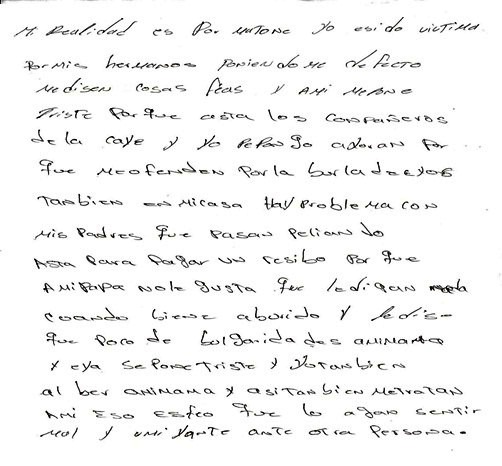 Mi Realidad es Por matone yo esido victima
Por mis hermanos poniendome defecto
Medisen cosas feas y ami mepone
triste porque asta los conpañeros
de la caye y yo pepongo alloran por
que meofenden por la burla deeyos
tanbien en micasa Hay problema con
mis padres que pasan peliando
Asta para pagar un resibo por que
Amipapa nole gusta que ledigan
cuando biene aburido y ledis-
que poco de bulgaridades amimama
y eya se pone triste y yotanbien
al ber amimama y asitanbien metratan
Ami Eso esfeo que lo agan sentir
mal y umiyante ante otra persona.